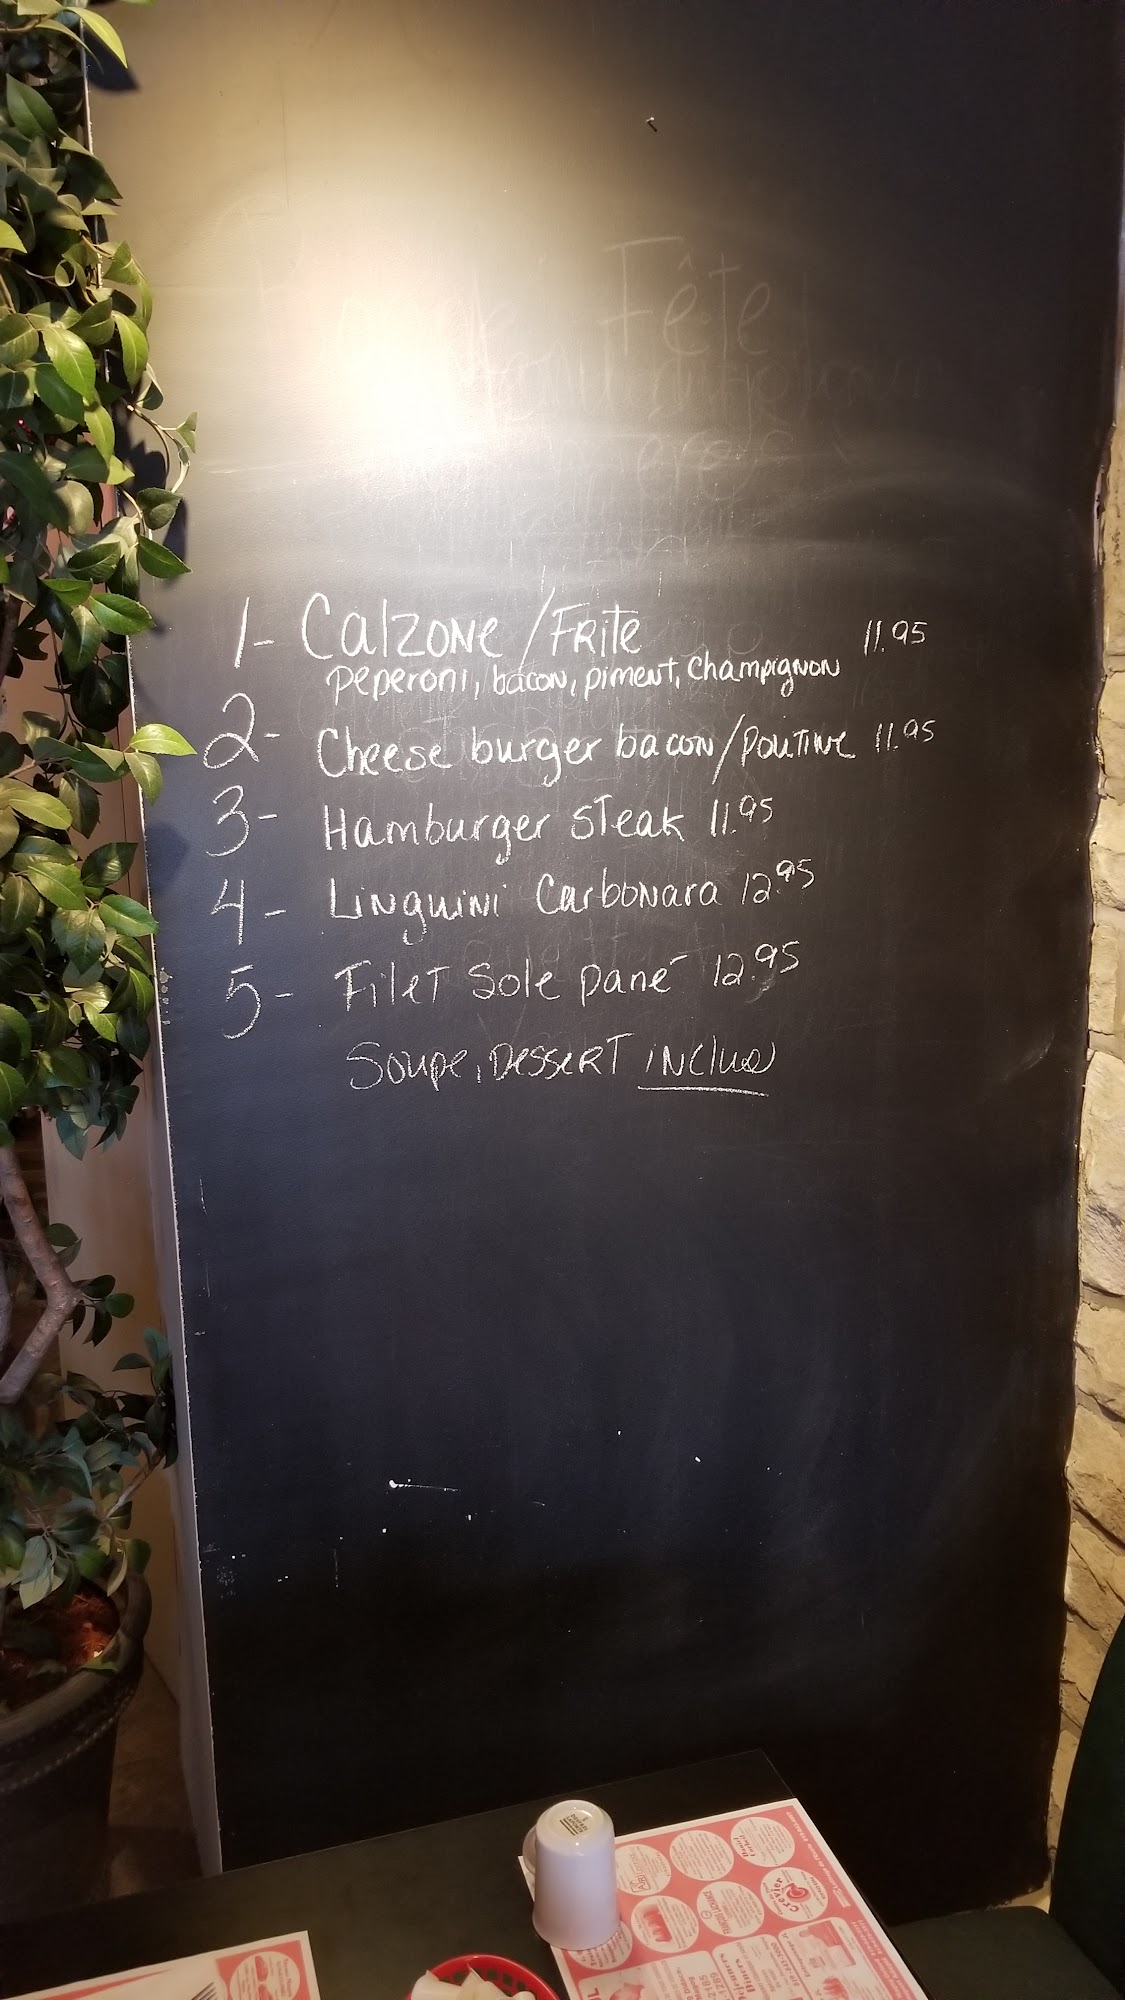 Fête
1- Calzone / Frite 11.95
peperoni, bacon, piment, champignon
2- Cheese burger bacon / poutine 11.95
3- Hamburger steak 11.95
4- Linguini Carbonara 12.95
5- Filet Sole pané 12.95
Soupe, Dessert inclus
Crevier